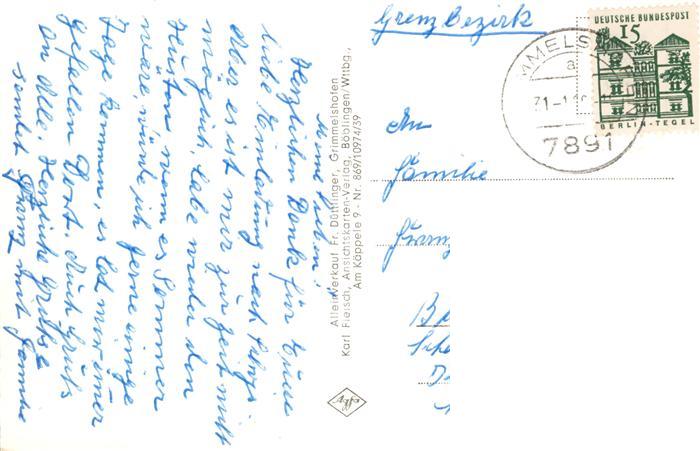 Meine Lieben!
Herzlichen Dank für Eure
liebe Einladung nach
Aber es ist mir zur Zeit nicht
möglich, habe wieder den
Husten wenn es Sommer
wäre, würde ich gerne einige
Tage kommen, es hat mir immer
gefallen Dort. Auch Gruß
an Alle, Herzliche Grüße
sendet Franz mit Familie
Alleinverkauf Fr. Düttlinger, Grimmelshofen
Karl Fleisch, Ansichtskarten-Verlag, Böblingen/Wttbg.,
Am Käppele 9 - Nr. 869/10974/39
Agfa
Grenz Bezirk
DEUTSCHE BUNDESPOST
15
BERLIN-TEGEL
MMELS
a
7891
An
Familie
Franz